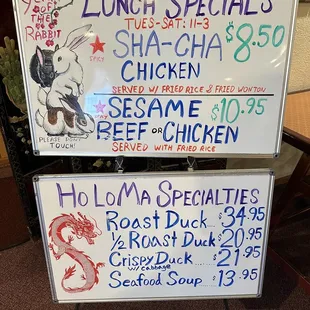 LUNCH SPECIALS
YEAR
OF THE
RABBIT
TUES-SAT: 11-3
SPICY
SHA-CHA $8.50
CHICKEN
SERVED W/ FRIED RICE & FRIED WONTON
SESAME $10.95
BEEF OR CHICKEN
SERVED WITH FRIED RICE
PLEASE DON'T
TOUCH!
HO LOMA SPECIALTIES
Roast Duck... $34.95
1/2 Roast Duck $20.95
Crispy Duck.... $21.95
w/ cabbage
Seafood Soup... $13.95